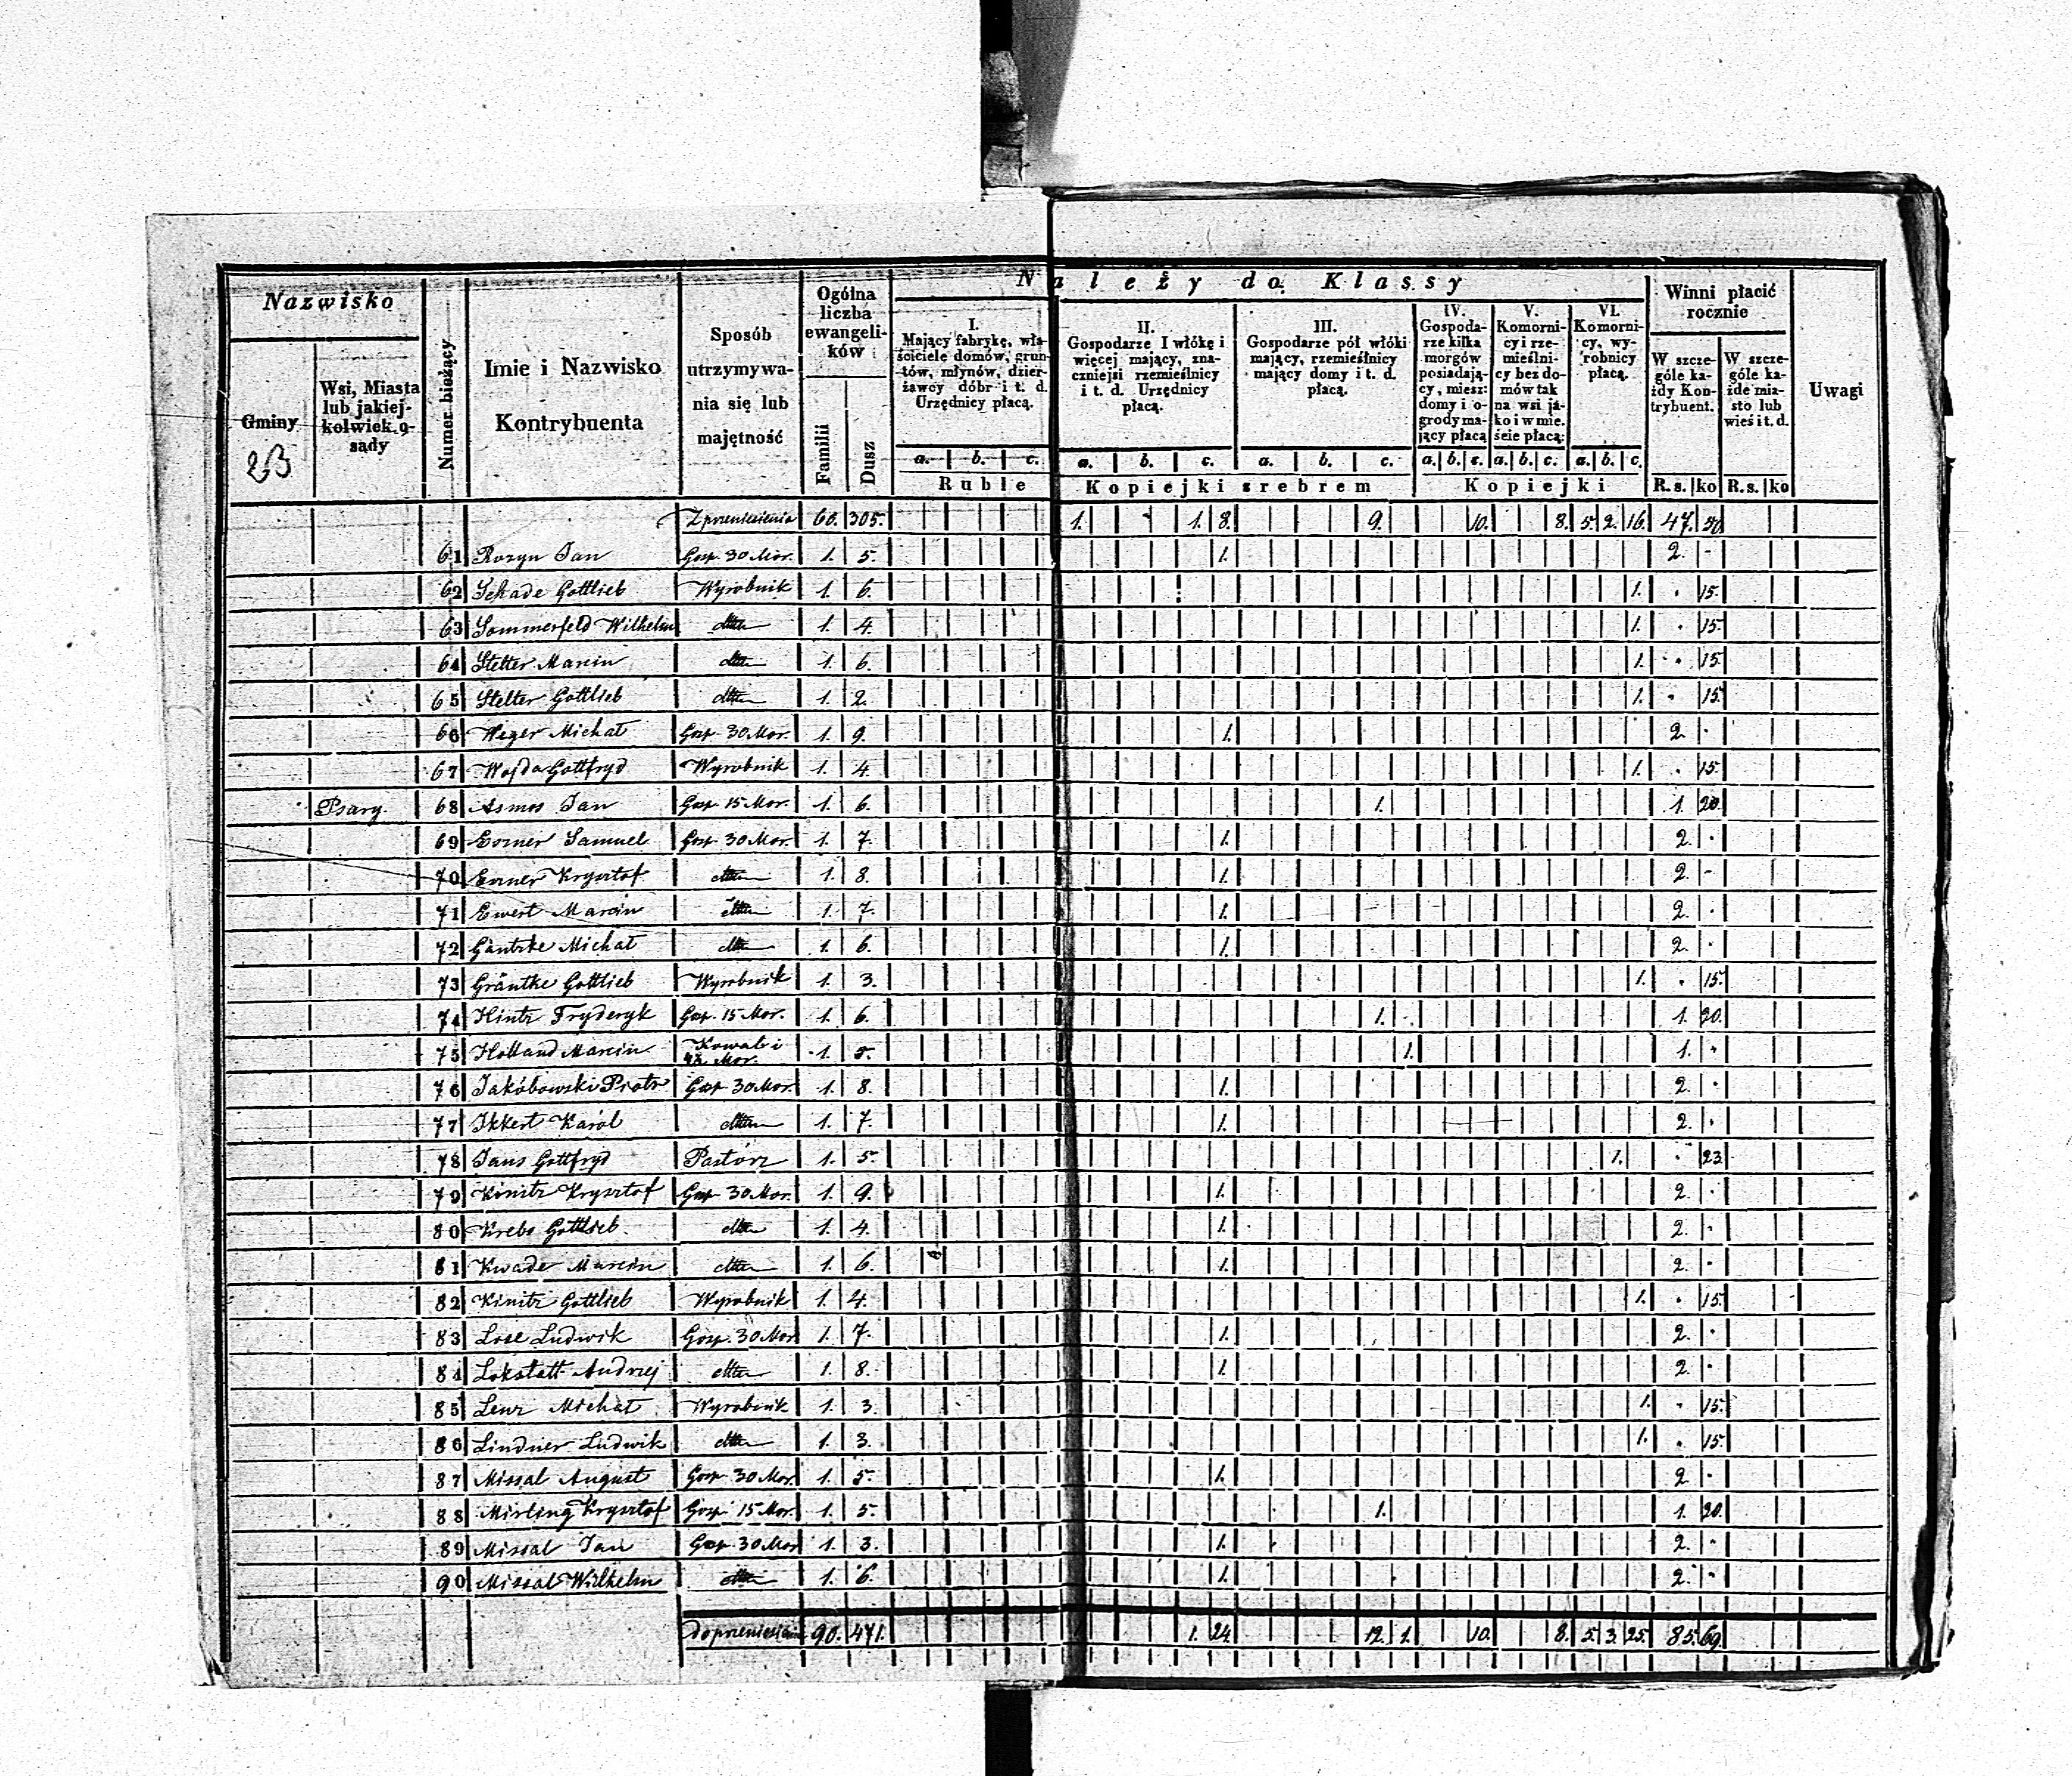 Należy do Klassy
Nazwisko
Gminy
23
Wsi, Miasta lub jakiej-kolwiek o-sady
Numer bieżący
Imie i Nazwisko
Kontrybuenta
Sposób utrzymywa-nia się lub majętność
Ogólna liczba ewangeli-ków
Familii
Dusz
I.
Mający fabrykę, wła-ściciele domów, grun-tów, młynów, dzier-żawcy dóbr i t. d. Urzędnicy płacą.
II.
Gospodarze I włókę i więcej mający, zna-czniejsi rzemieślnicy i t. d. Urzędnicy płacą.
III.
Gospodarze pół włóki mający, rzemieślnicy mający domy i t. d. płacą.
IV.
Gospoda-rze kilka morgów posiadają-cy, miesz: domy i o-grody ma-jący płacą
V.
Komorni-cy i rze-mieślni-cy bez do-mów tak na wsi ja-ko i w mie-ście płacą:
VI.
Komorni-cy, wy-robnicy płacą.
Winni płacić rocznie
W szcze-góle ka-żdy Kon-trybuent.
W szcze-góle ka-żde mia-sto lub wieś i t. d.
Uwagi
a. b. c. a. b. c. a. b. c. a. b. c. a. b. c. a. b. c.
Ruble Kopiejki srebrem Kopiejki R.s. ko R.s. ko
Z przeniesienia 60. 305. 1. 1. 8. 9. 10. 8. 5. 2. 16. 47. 50
61 Rozyn Jan Gosp. 30 Mor. 1. 5. 1. 2. -
62 Schade Gottlieb Wyrobnik 1. 6. 1. . 15.
63 Sommerfeld Wilhelm detto 1. 4. 1. . 15.
64 Stelter Marcin detto 1. 6. 1. . 15.
65 Stelter Gottlieb detto 1. 2. 1. . 15.
66 Weger Michał Gosp. 30 Mor. 1. 9. 1. 2. .
67 Wojda Gottfryd Wyrobnik 1. 4. 1. . 15.
Psary 68 Asmos Jan Gosp. 15 Mor. 1. 6. 1. 1. 20.
69 Samuel Gosp. 30 Mor. 1. 7. 1. 2. .
70 Krysztof detto 1. 8. 1. 2. -
71 Ewert Marcin detto 1. 7. 1. 2. .
72 Gäntzke Michał detto 1. 6. 1. 2. .
73 Gräntke Gottlieb Wyrobnik 1. 3. 1. . 15.
74 Hintz Fryderyk Gosp. 15 Mor. 1. 6. 1. 1. 20.
75 Holland Marcin Kowal i Mor. 1. 5. 1. 1. .
76 Jakóbowski Piotr Gosp. 30 Mor. 1. 8. 1. 2. .
77 Ikkert Karól detto 1. 7. 1. 2. .
78 Jans Gottfryd Pastórz 1. 5. 1. . 23
79 Kinitz Krysztof Gosp. 30 Mor. 1. 9. 1. 2. .
80 Krebs Gottlieb detto 1. 4. 1. 2. .
81 Kwade Marcin detto 1. 6. 1. 2. .
82 Kinitz Gottlieb Wyrobnik 1. 4. 1. . 15.
83 Lose Ludwik Gosp. 30 Mor 1. 7. 1. 2. .
84 Lokstatt Andrzej detto 1. 8. 1. 2. .
85 Lenz Michał Wyrobnik 1. 3. 1. . 15.
86 Lindner Ludwik detto 1. 3. 1. . 15.
87 Missal August Gosp. 30 Mor. 1. 5. 1. 2. .
88 Misling Krysztof Gosp. 15 Mor. 1. 5. 1. 1. 20.
89 Missal Jan Gosp. 30 Mor 1. 3. 1. 2. .
90 Missal Wilhelm detto 1. 6. 1. 2. .
do przeniesienia 90. 471. 1. 24. 12. 1. 10. 8. 5. 3. 25. 85. 69.